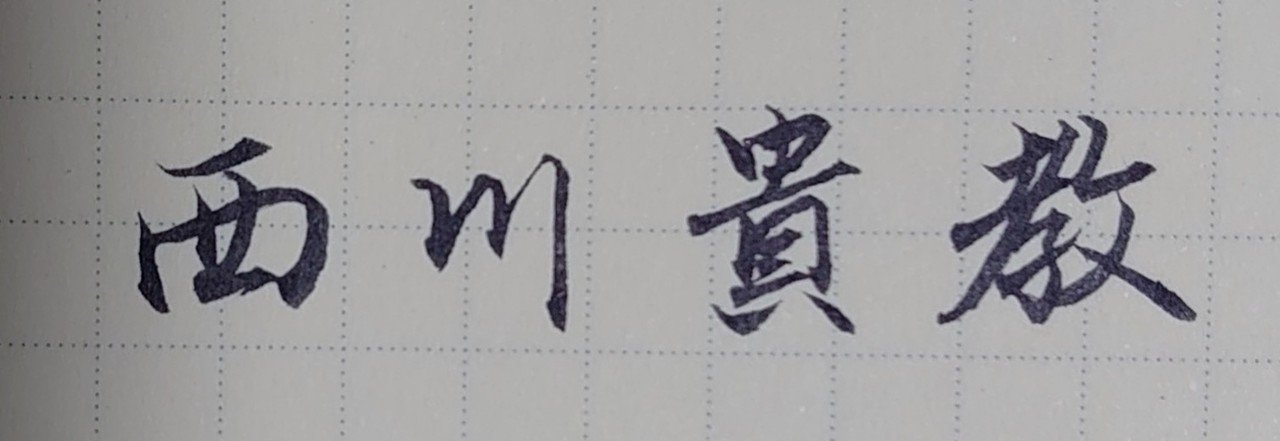 西川貴教